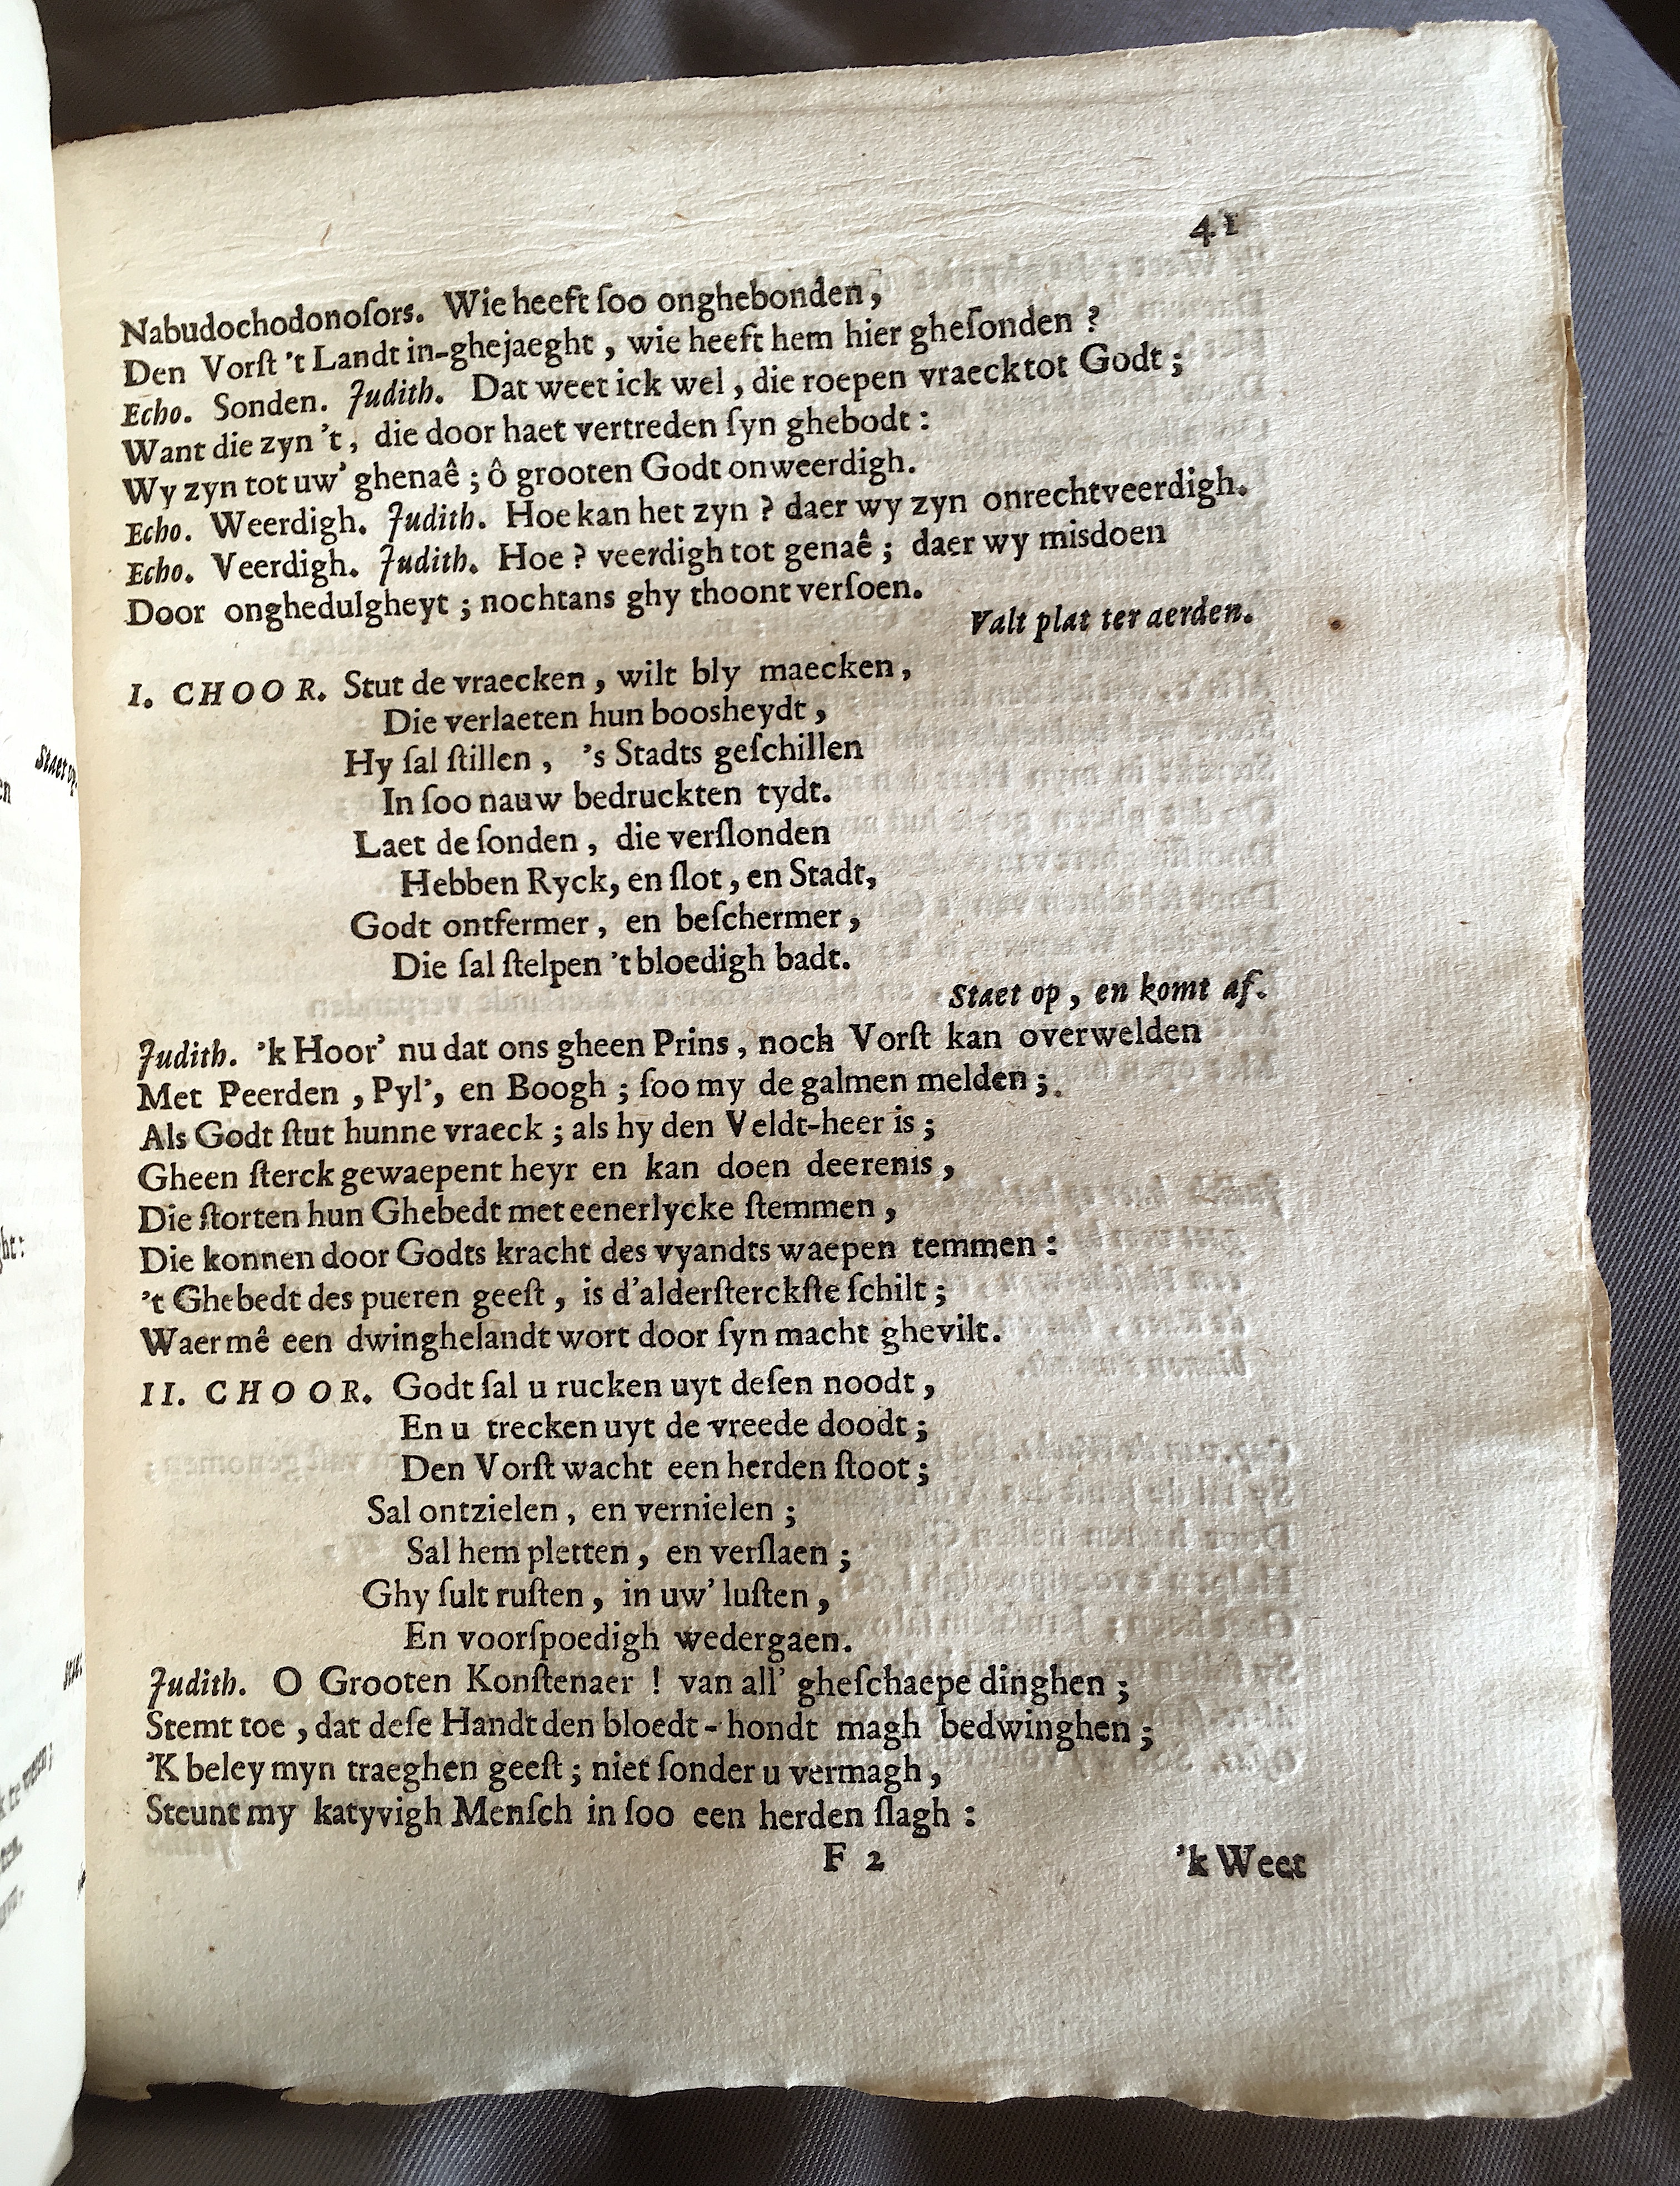 41
Nabudochodonoſors. Wie heeft ſoo onghebonden,
Den Vorſt 't Landt in-ghejaeght, wie heeft hem hier gheſonden?
Echo. Sonden. Judith. Dat weet ick wel, die roepen vraeck tot Godt;
Want die zyn 't, die door haet vertreden ſyn ghebodt:
Wy zyn tot uw' ghenaê; ô grooten Godt onweerdigh.
Echo. Weerdigh. Judith. Hoe kan het zyn? daer wy zyn onrechtveerdigh.
Echo. Veerdigh. Judith. Hoe? veerdigh tot genaê; daer wy misdoen
Door onghedulgheyt; nochtans ghy thoont verſoen.
Valt plat ter aerden.
I. CHOOR. Stut de vraecken, wilt bly maecken,
Die verlaeten hun boosheydt,
Hy ſal ſtillen, 's Stadts geſchillen
In ſoo nauw bedruckten tydt.
Laet de ſonden, die verſlonden
Hebben Ryck, en ſlot, en Stadt,
Godt ontfermer, en beſchermer,
Die ſal ſtelpen 't bloedigh badt.
Staet op, en komt af.
Judith. 'k Hoor' nu dat ons gheen Prins, noch Vorſt kan overwelden
Met Peerden, Pyl', en Boogh; ſoo my de galmen melden;
Als Godt ſtut hunne vraeck; als hy den Veldt-heer is;
Gheen ſterck gewaepent heyr en kan doen deerenis,
Die ſtorten hun Ghebedt met eenerlycke ſtemmen,
Die konnen door Godts kracht des vyandts waepen temmen:
't Ghebedt des pueren geeſt, is d'alderſterckſte ſchilt;
Waer mê een dwinghelandt wort door ſyn macht ghevilt.
II. CHOOR. Godt ſal u rucken uyt deſen noodt,
En u trecken uyt de vreede doodt;
Den Vorſt wacht een herden ſtoot;
Sal ontzielen, en vernielen;
Sal hem pletten, en verſlaen;
Ghy ſult ruſten, in uw' luſten,
En voorſpoedigh wedergaen.
Judith. O Grooten Konſtenaer! van all' gheſchaepe dinghen;
Stemt toe, dat deſe Handt den bloedt-hondt magh bedwinghen;
'K beley myn traeghen geeſt; niet ſonder u vermagh,
Steunt my katyvigh Menſch in ſoo een herden ſlagh:
F 2
'k Weet